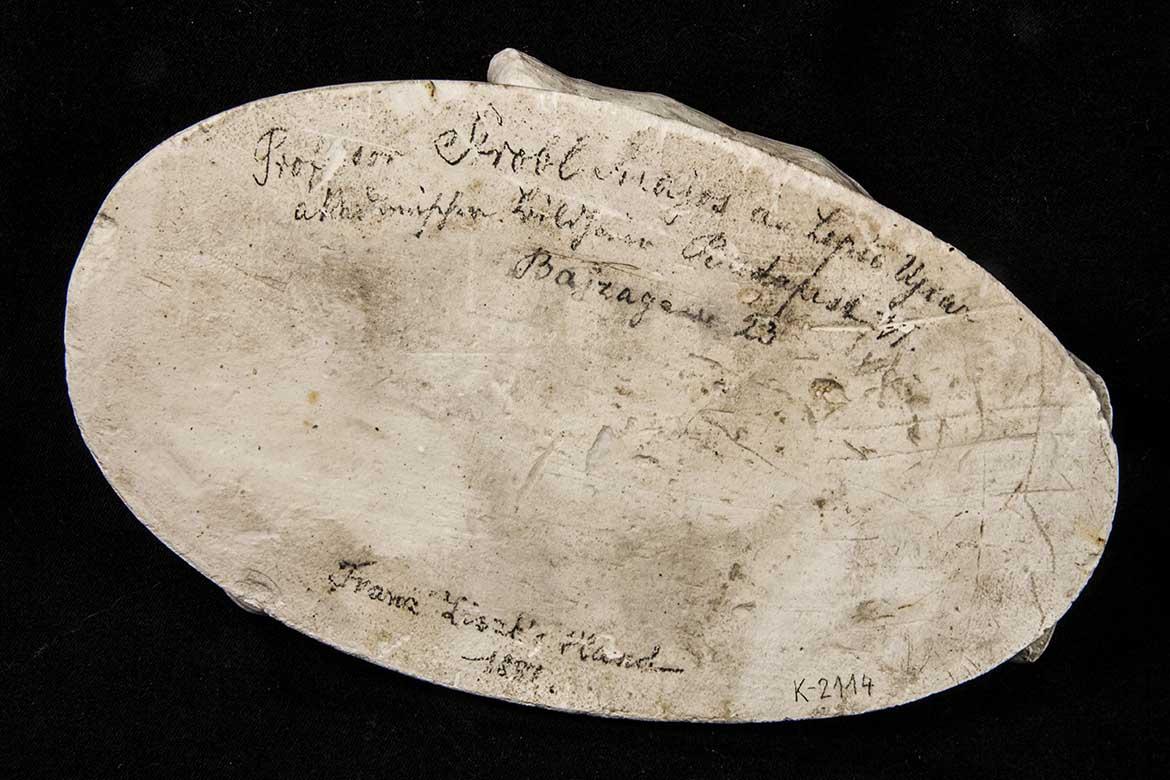 Professor Strobl Alajos an Lipto Ujvar
akademischer Bildhauer Budapest VI.
Bajzagasse 23
Franz Liszt's Hand
K-2114